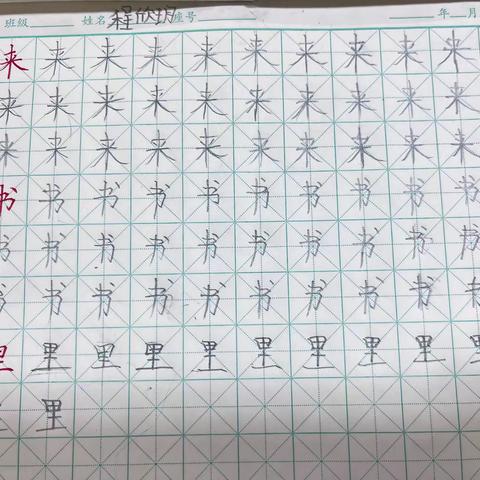 班级 姓名 程欣玥 座号 年 月
来来来来来来来来来来
来来来来来来来来来来
来来来来来来来来来来
书书书书书书书书书书
书书书书书书书书书书
书书书书书书书书书书
里里里里里里里里里里
里里